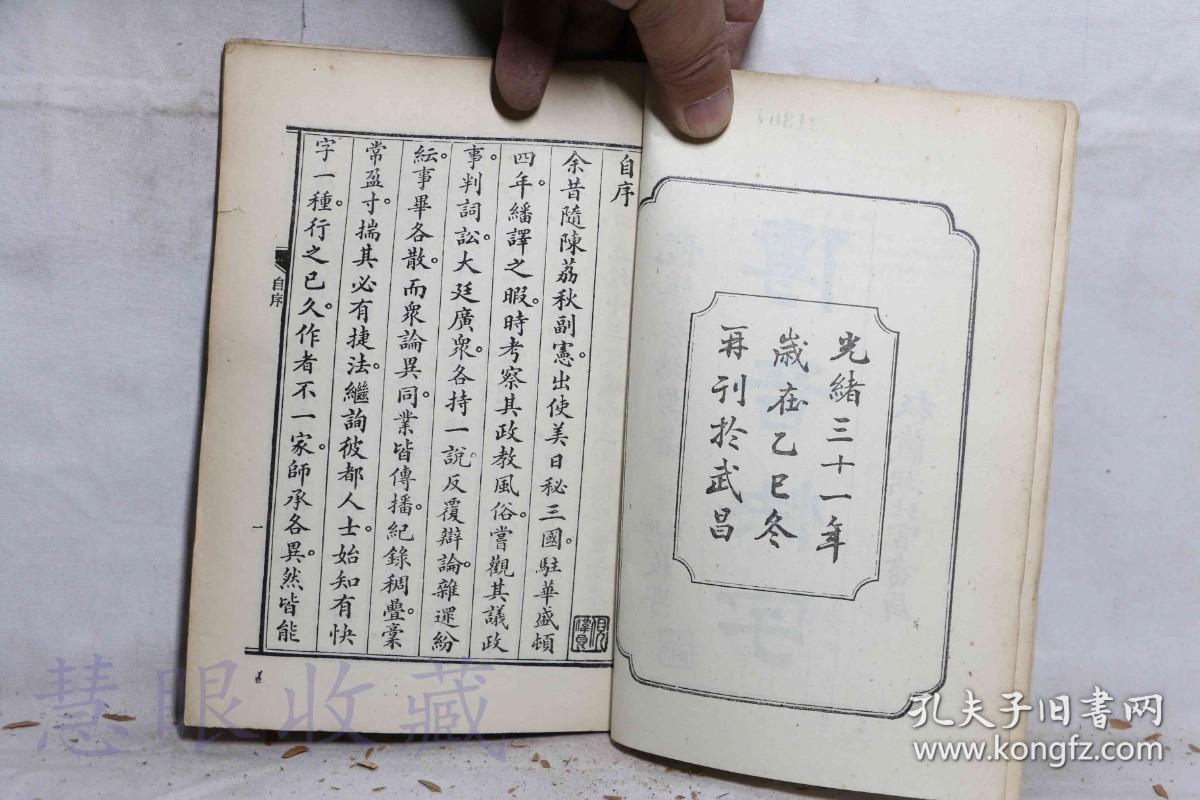 光緒三十一年
歲在乙巳冬
再刊於武昌
自序
余昔隨陳荔秋副憲。出使美日秘三國。駐華盛頓
四年。繙譯之暇。時考察其政教風俗。嘗觀其議政
事判詞訟。大廷廣衆。各持一說。反覆辯論。雜遝紛
紜。事畢各散。而衆論異同。業皆傳播。紀錄稠疊。稾
常盈寸。揣其必有捷法。繼詢彼都人士。始知有快
字一種。行之已久。作者不一家。師承各異。然皆能
自序
一
慧眼收藏
孔夫子旧书网
www.kongfz.com